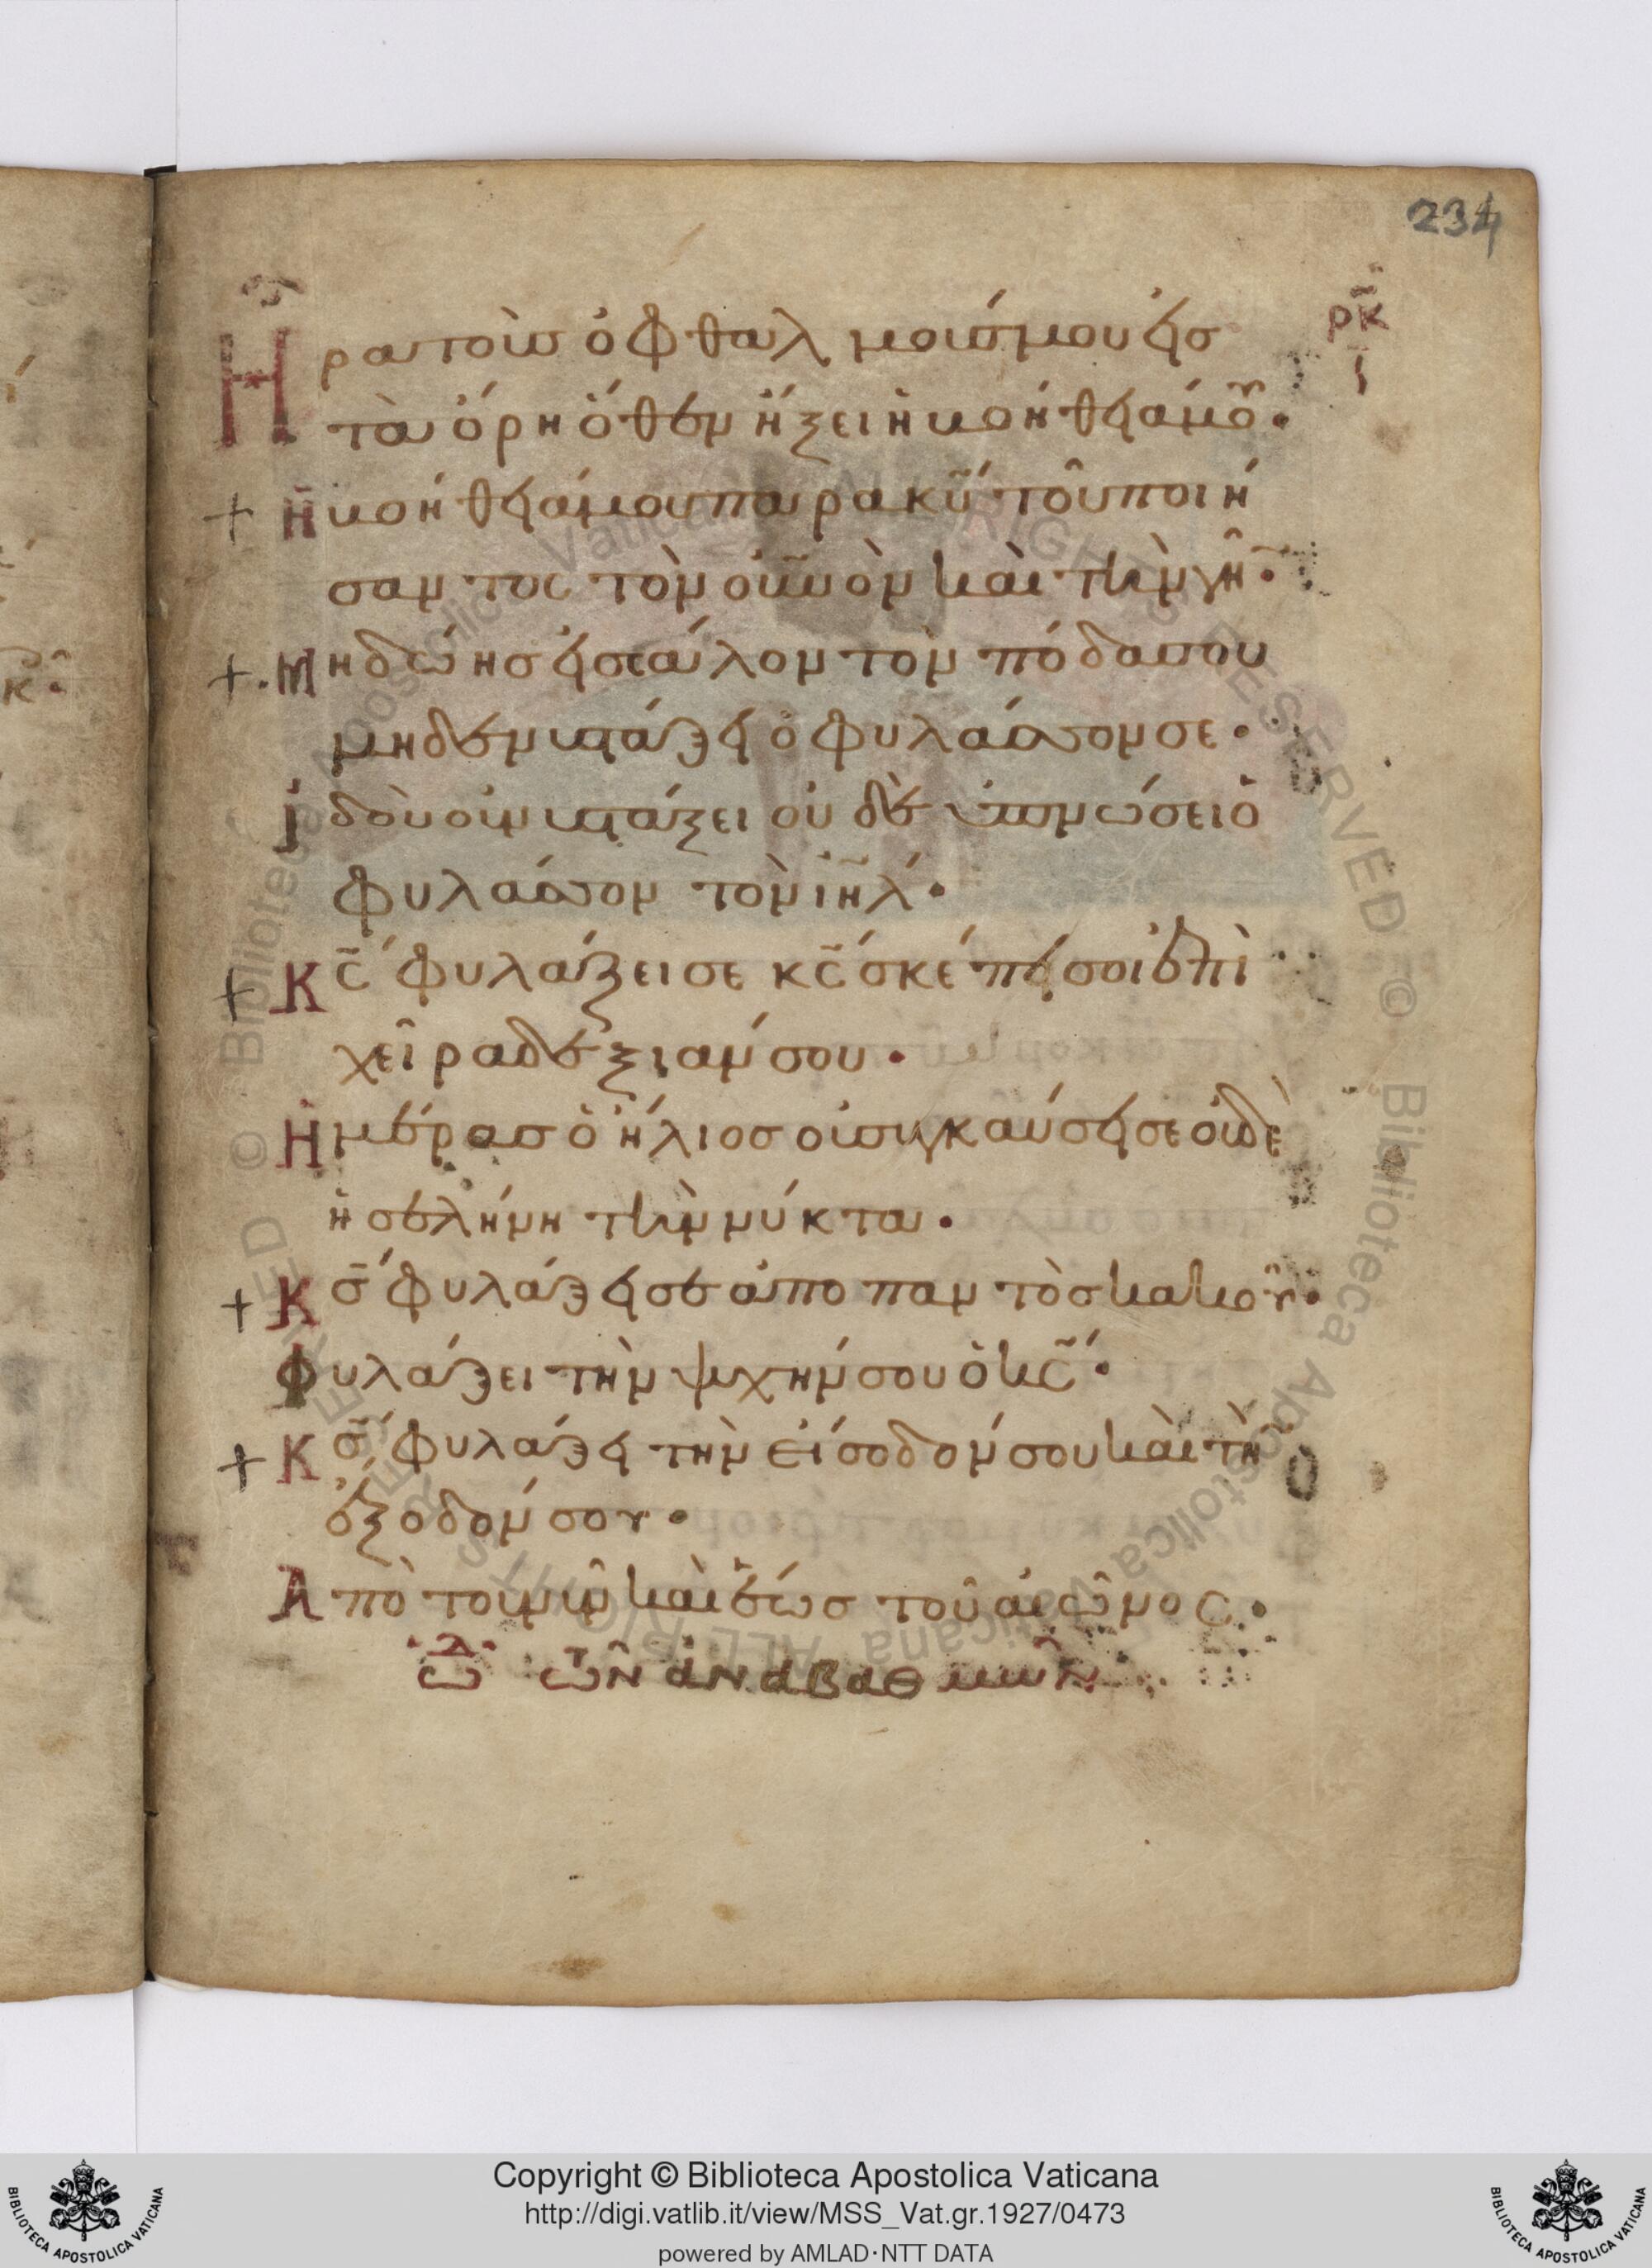 234
ρκ̄
ι
Ἦρα τοὺσ ὀφθαλμούσ μου εἰσ
τὰ ὄρη ὅθεν ἥξει ἡ βοήθειά μου·
+ ἡ βοήθειά μου παρὰ κῡ τοῦ ποιή
σαντος τὸν οὐνὸν καὶ τὴν γῆ·
+ Μὴ δώησ εἰσ σάλον τὸν πόδα σου
μηδὲ νυστάξει ὁ φυλάσσον σε·
ἰδοὺ οὐ νυστάξει οὐδὲ ὑπνώσει ὁ
φυλάσσον τὸν ιηλ·
+ Κς φυλάξει σε κς σκέπη σοι ἐπὶ
χεῖρα δεξιάν σου·
Ἡμέρασ ὁ ἥλιοσ οὐ συγκαύσει σε οὐδὲ
ἡ σελήνη τὴν νύκτα·
+ Κσ φυλάξει σε ἀπο παντὸσ κακοῦ·
φυλάξει τὴν ψυχήν σου ὁ κς·
+ Κσ φυλάξει τὴν εἴσοδόν σου καὶ τὴ
ἔξοδόν σου·
Ἀπὸ τοῦ νῦν καὶ ἕωσ τοῦ αἰῶνος·
ὠδ τῶν ἀναβαθμῶν
Copyright © Biblioteca Apostolica Vaticana
http://digi.vatlib.it/view/MSS_Vat.gr.1927/0473
powered by AMLAD·NTT DATA
BIBLIOTECA APOSTOLICA VATICANA
BIBLIOTECA APOSTOLICA VATICANA